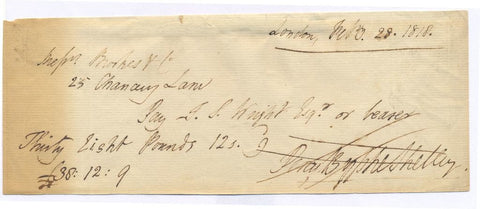 London, Feb. 28. 1818.
Messrs. Brookes & Co
25 Chancery Lane
Pay J. S. Wright Esqr. or bearer
Thirty Eight Pounds 12s. 9
£38: 12: 9
Percy Bysshe Shelley